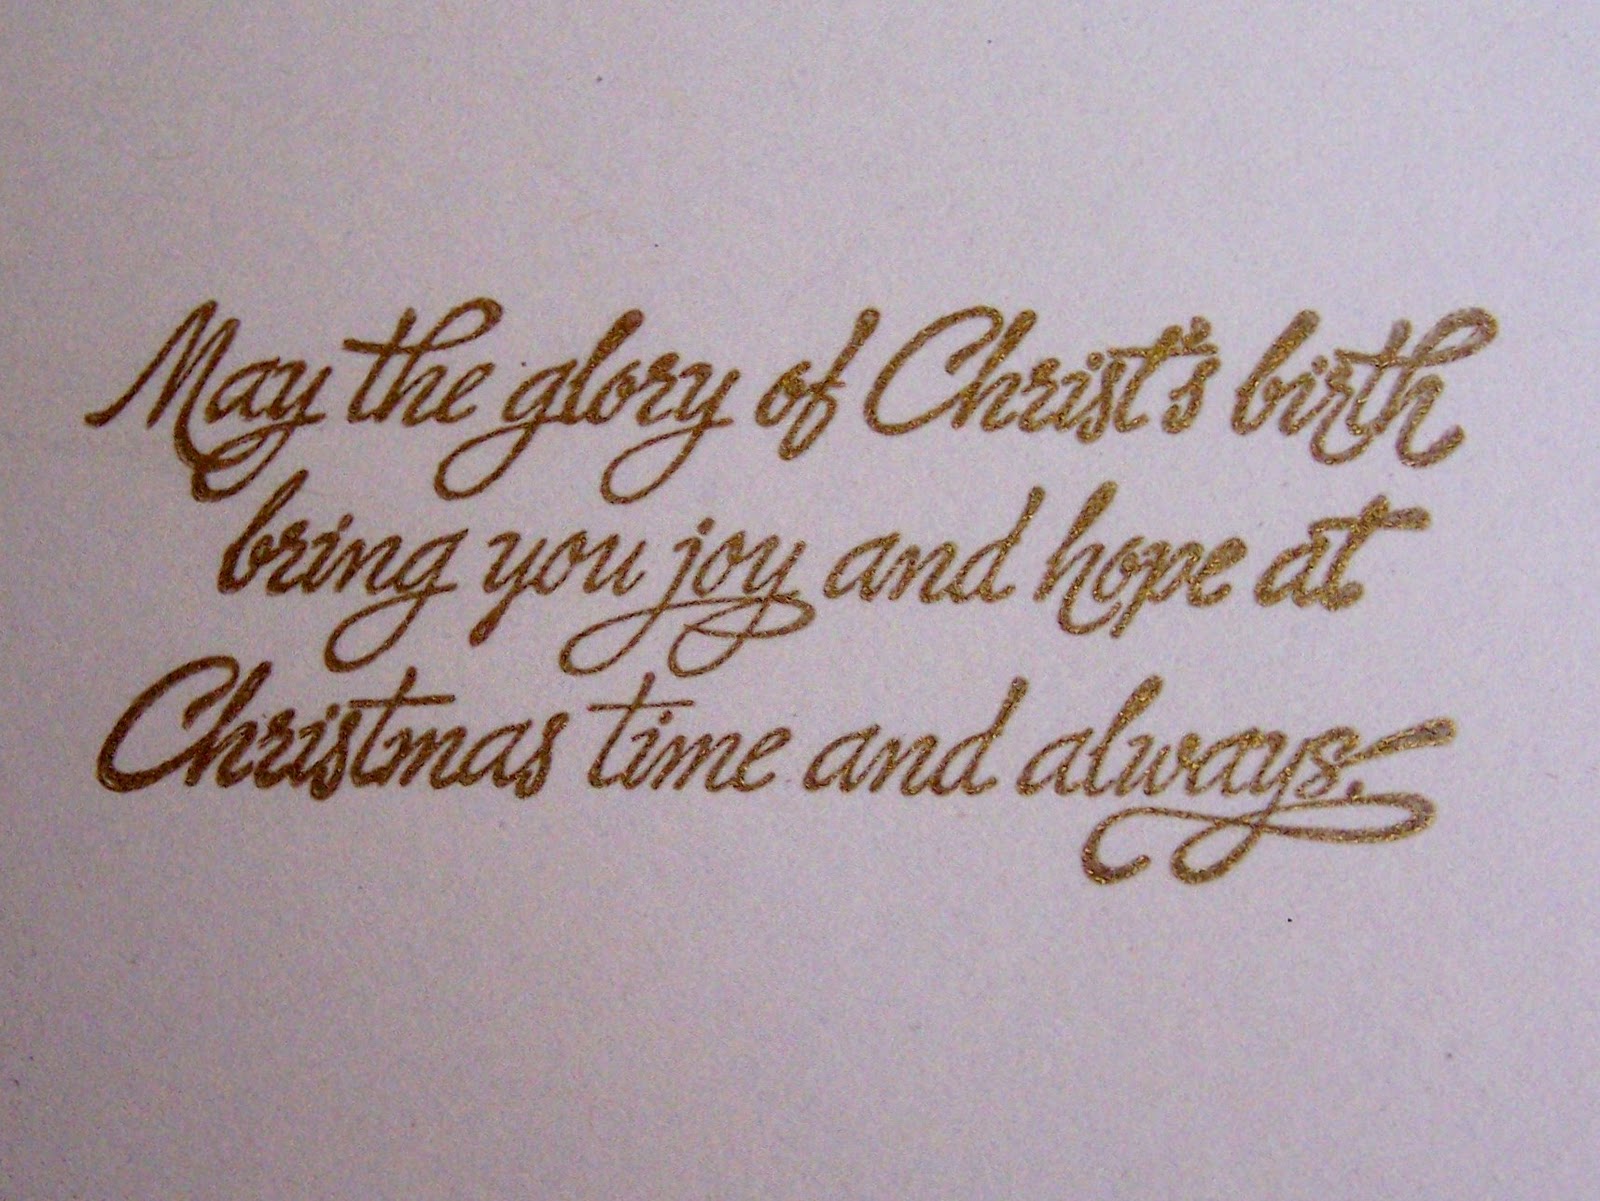 May the glory of Christ's birth
bring you joy and hope at
Christmas time and always.